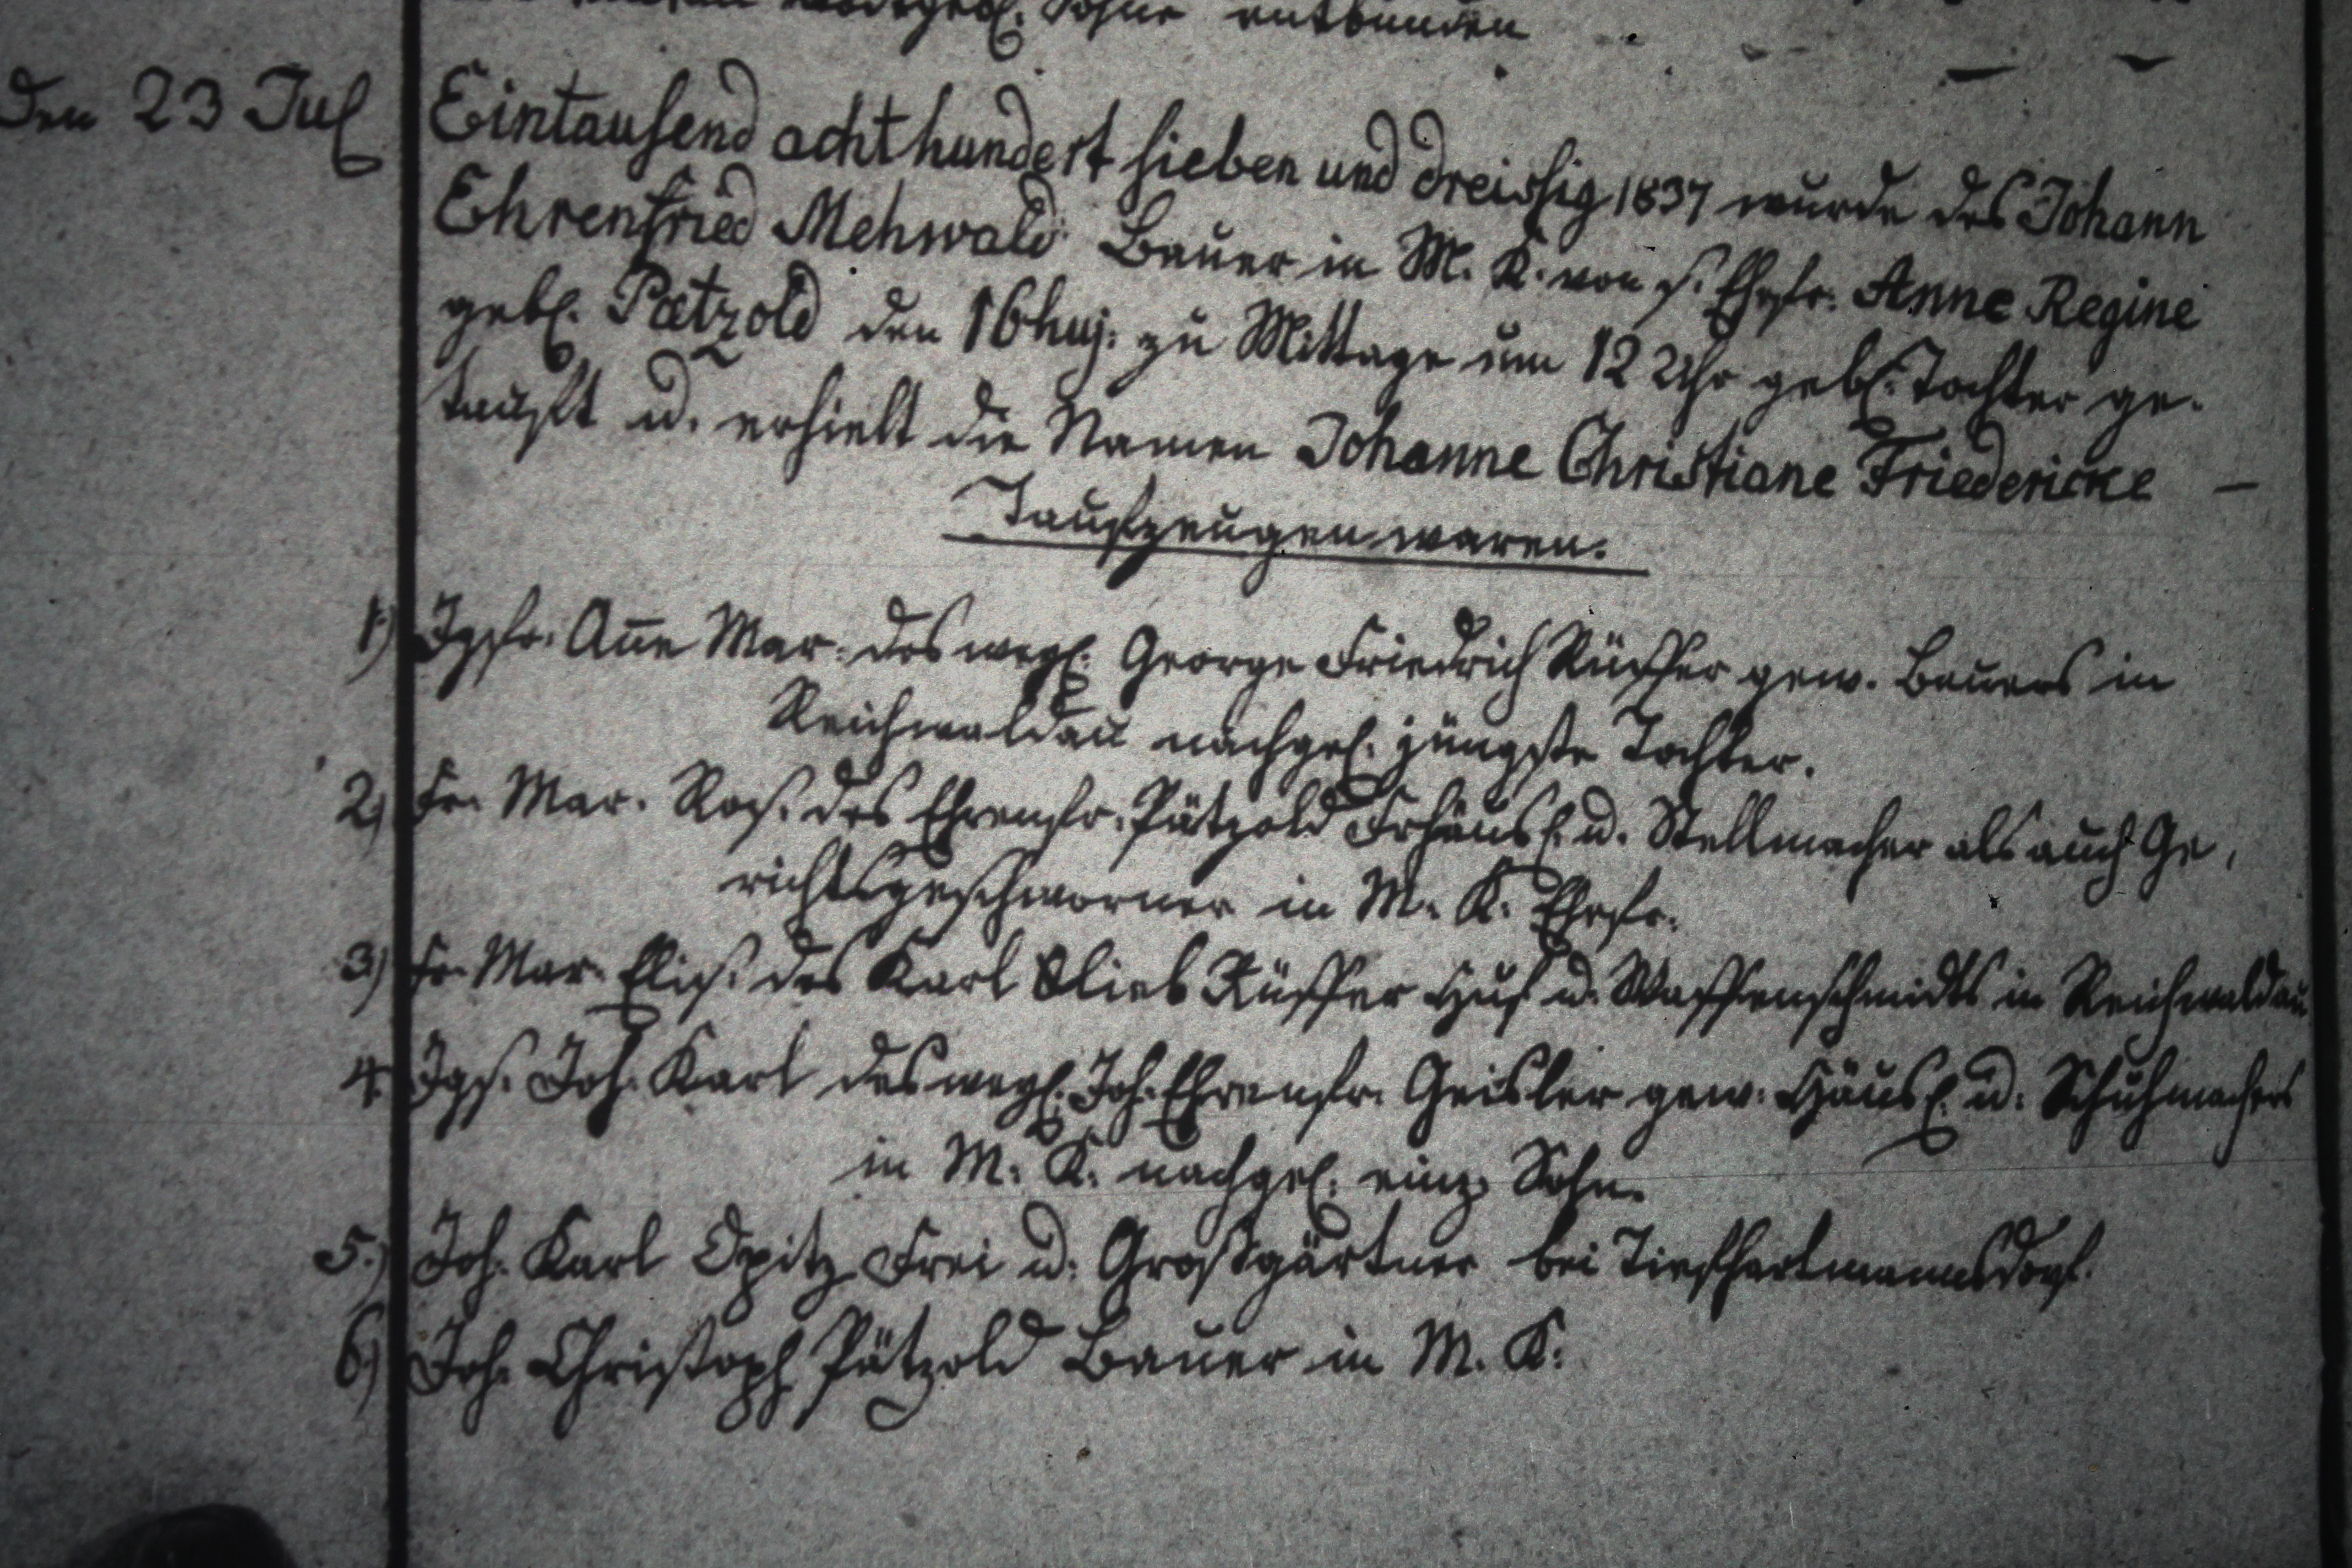 todtgeb. Sohne entbunden
den 23 Jul
Eintausend achthundert sieben und dreissig 1837 wurde des Johann
Ehrenfried Mehwald Bauer in M. K. von s. Ehefr. Anne Regine
geb. Pætzold den 16 huj. zu Mittage um 12 Uhr geb. Tochter ge-
tauft u. erhielt die Namen Johanne Christiane Friedericke —
Taufzeugen waren.
1) Jgfr. Ańe Mar. des wegl. George Friedrich Rüffer gew. Bauers in
Reichwaldau nachgel. jüngste Tochter.
2) Fr. Mar. Ros. des Ehrenfr. Pätzold Frhäusl. u. Stellmacher als auch Ge,
richtsgeschworner in M. K. Ehefr.
3) Fr. Mar. Elis. des Karl Glieb Rüffer Huf u. Waffenschmidts in Reichwaldau
4. Jgs. Joh. Karl des wegl. Joh. Ehrenfr. Geisler gew. Häusl. u. Schuhmachers
in M. K. nachgel. einz. Sohn.
5.) Joh. Karl Opitz Frei u. Großgärtner bei Tiefhartmannsdorf.
6) Joh. Christoph Pätzold Bauer in M. K.